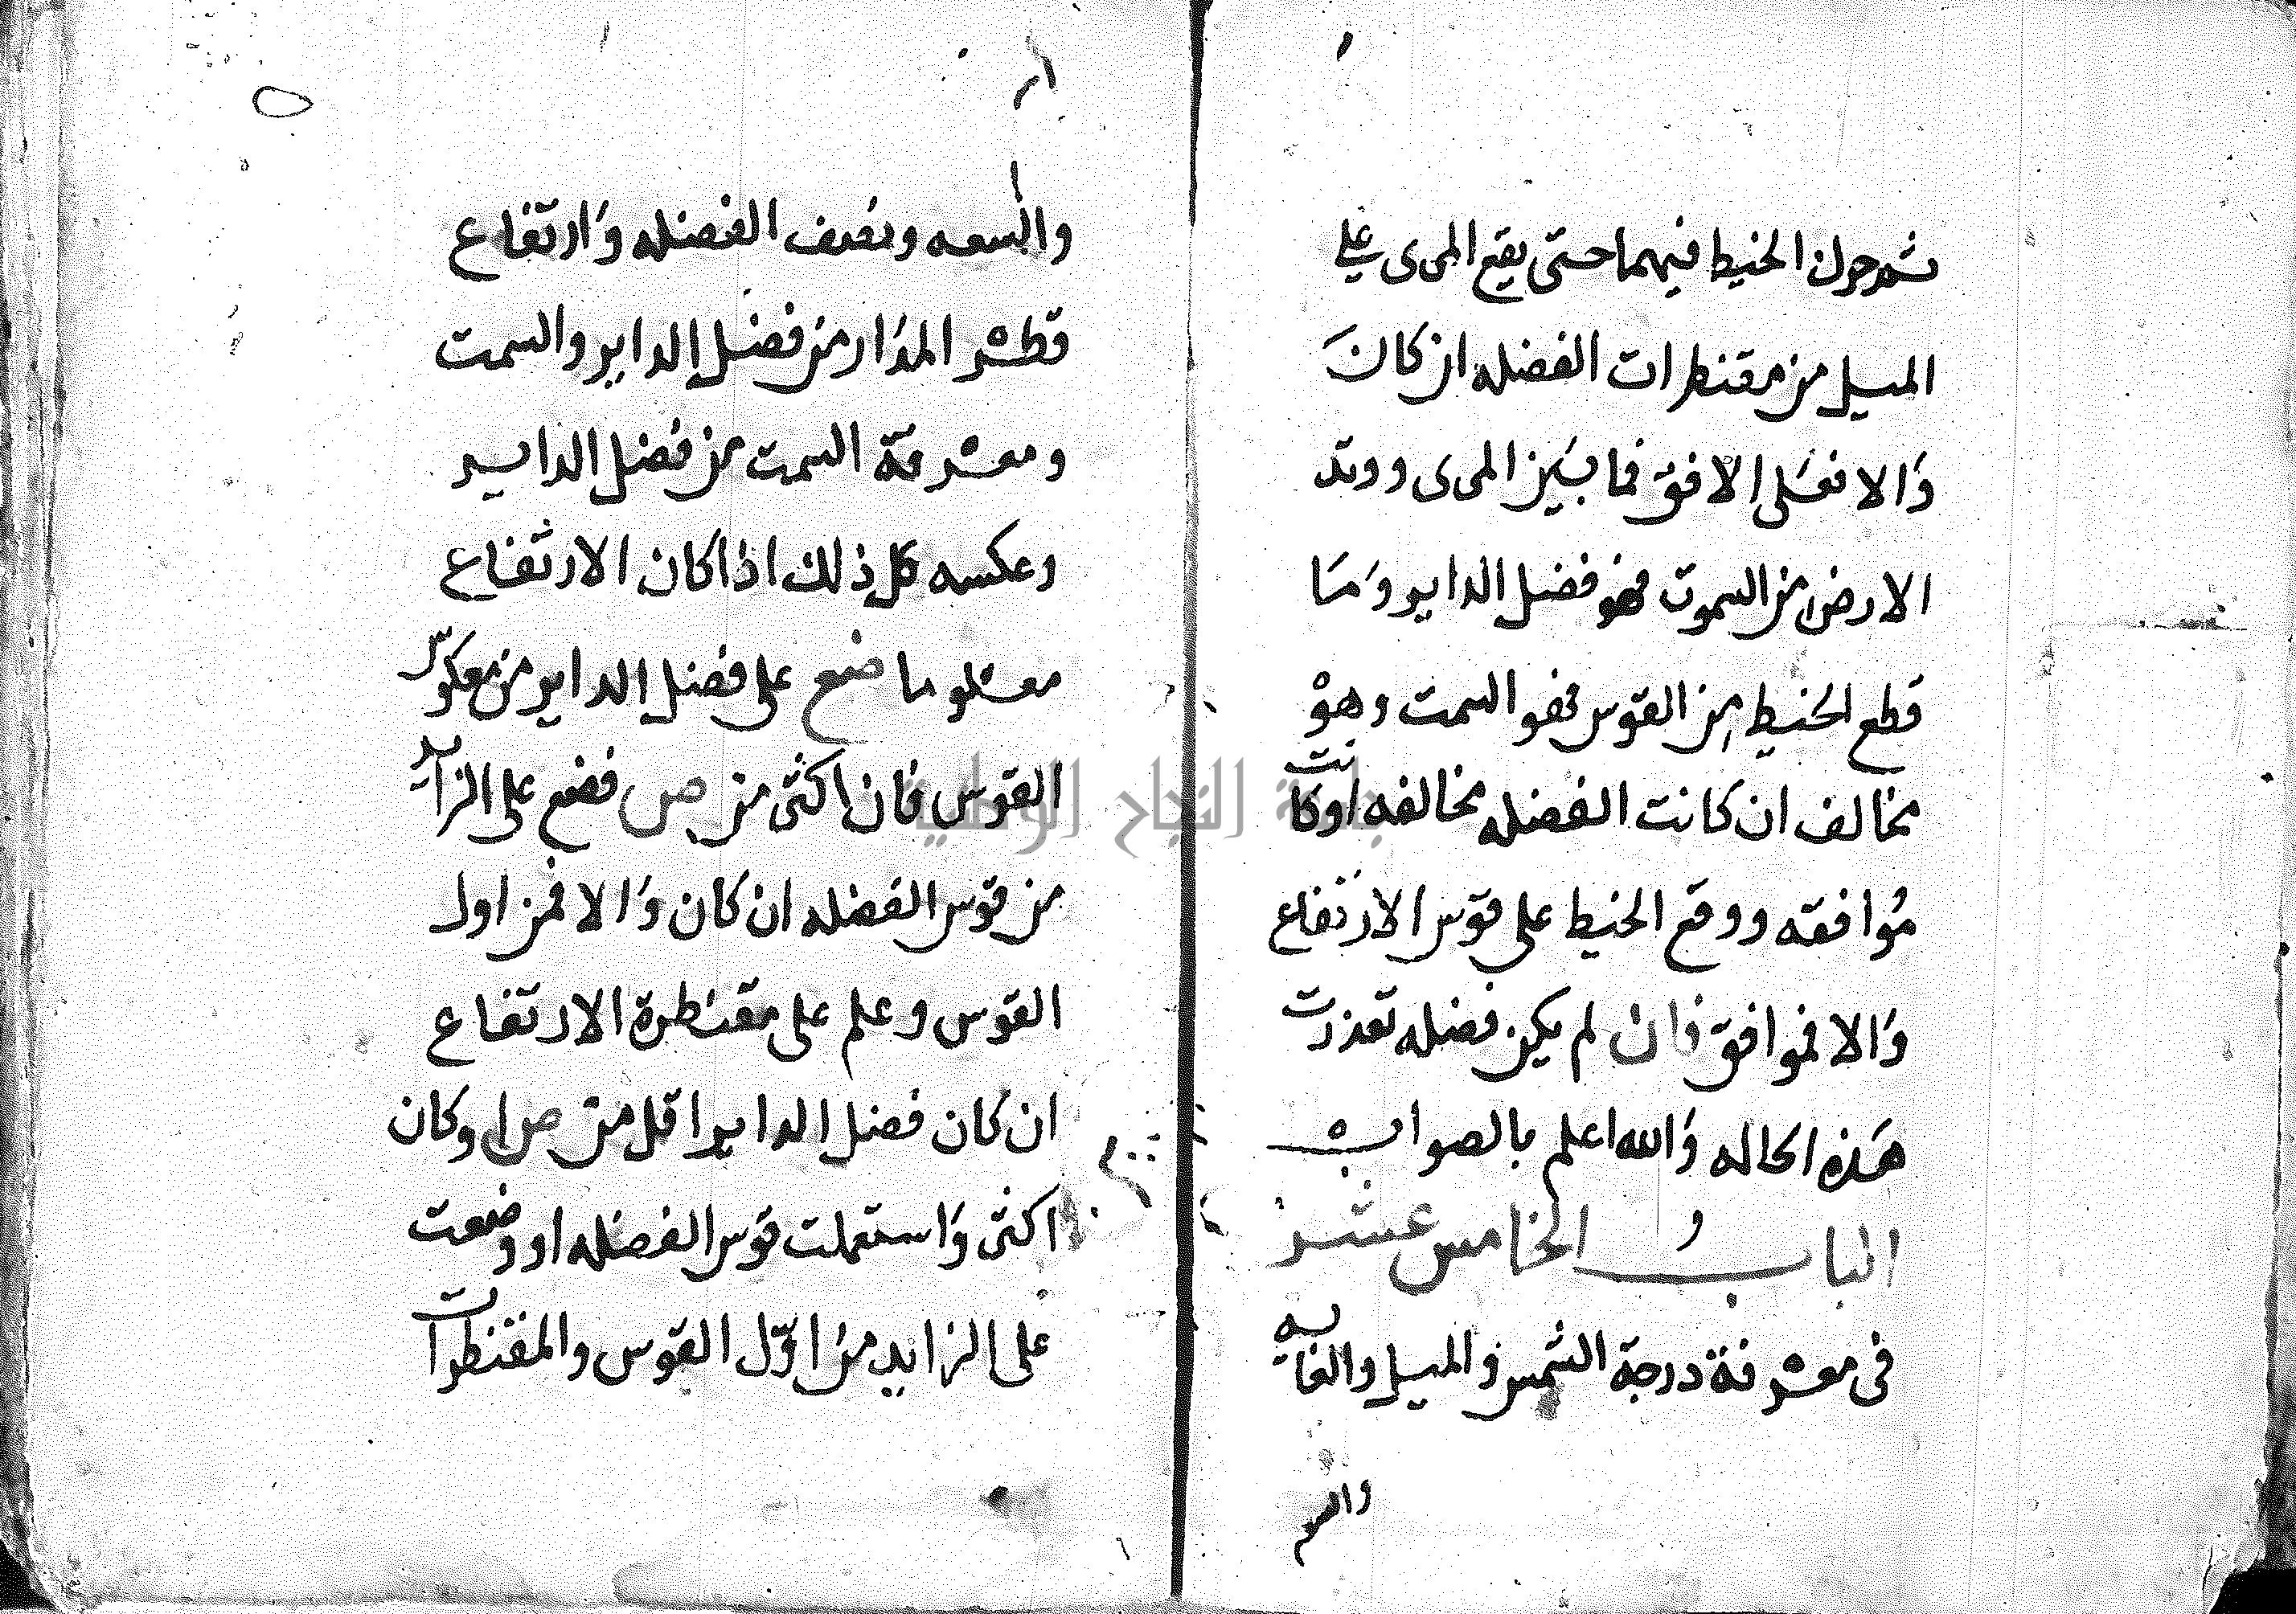 ثم حول الخيط فيهما حتى يقع المرى على
الميل من مقنطرات الفضله ان كان
والا فعلى الافق فما بين المرى ووتد
الارض من السموت فهو فضل الداير وما
قطع الخيط من القوس فهو السمت وهو
مخالف ان كانت الفضله مخالفه اوكانت
موافقه ووقع الخيط على قوس الارتفاع
والا فموافق فان لم يكن فضله تعذرت
هذه الحاله والله اعلم بالصواب
الباب الخامس عشر
فى معرفة درجة الشمس والميل والغايه
والسعه ونصف الفضله وارتفاع
قطر المدار من فضل الداير والسمت
ومعرفة السمت من فضل الداير
وعكسه كل ذلك اذا كان الارتفاع
معلوما ضع على فضل الداير من معكوس
القوس فان اكثر من ص فضع على الزايد
من قوس الفضله ان كان والا فمن اول
القوس وعلم على مقنطرة الارتفاع
ان كان فضل الداير اقل من ص او كان
اكثر واستعملت قوس الفضله او وضعت
على الزايد من اول القوس والمقنطرات
جامعة النجاح الوطنية